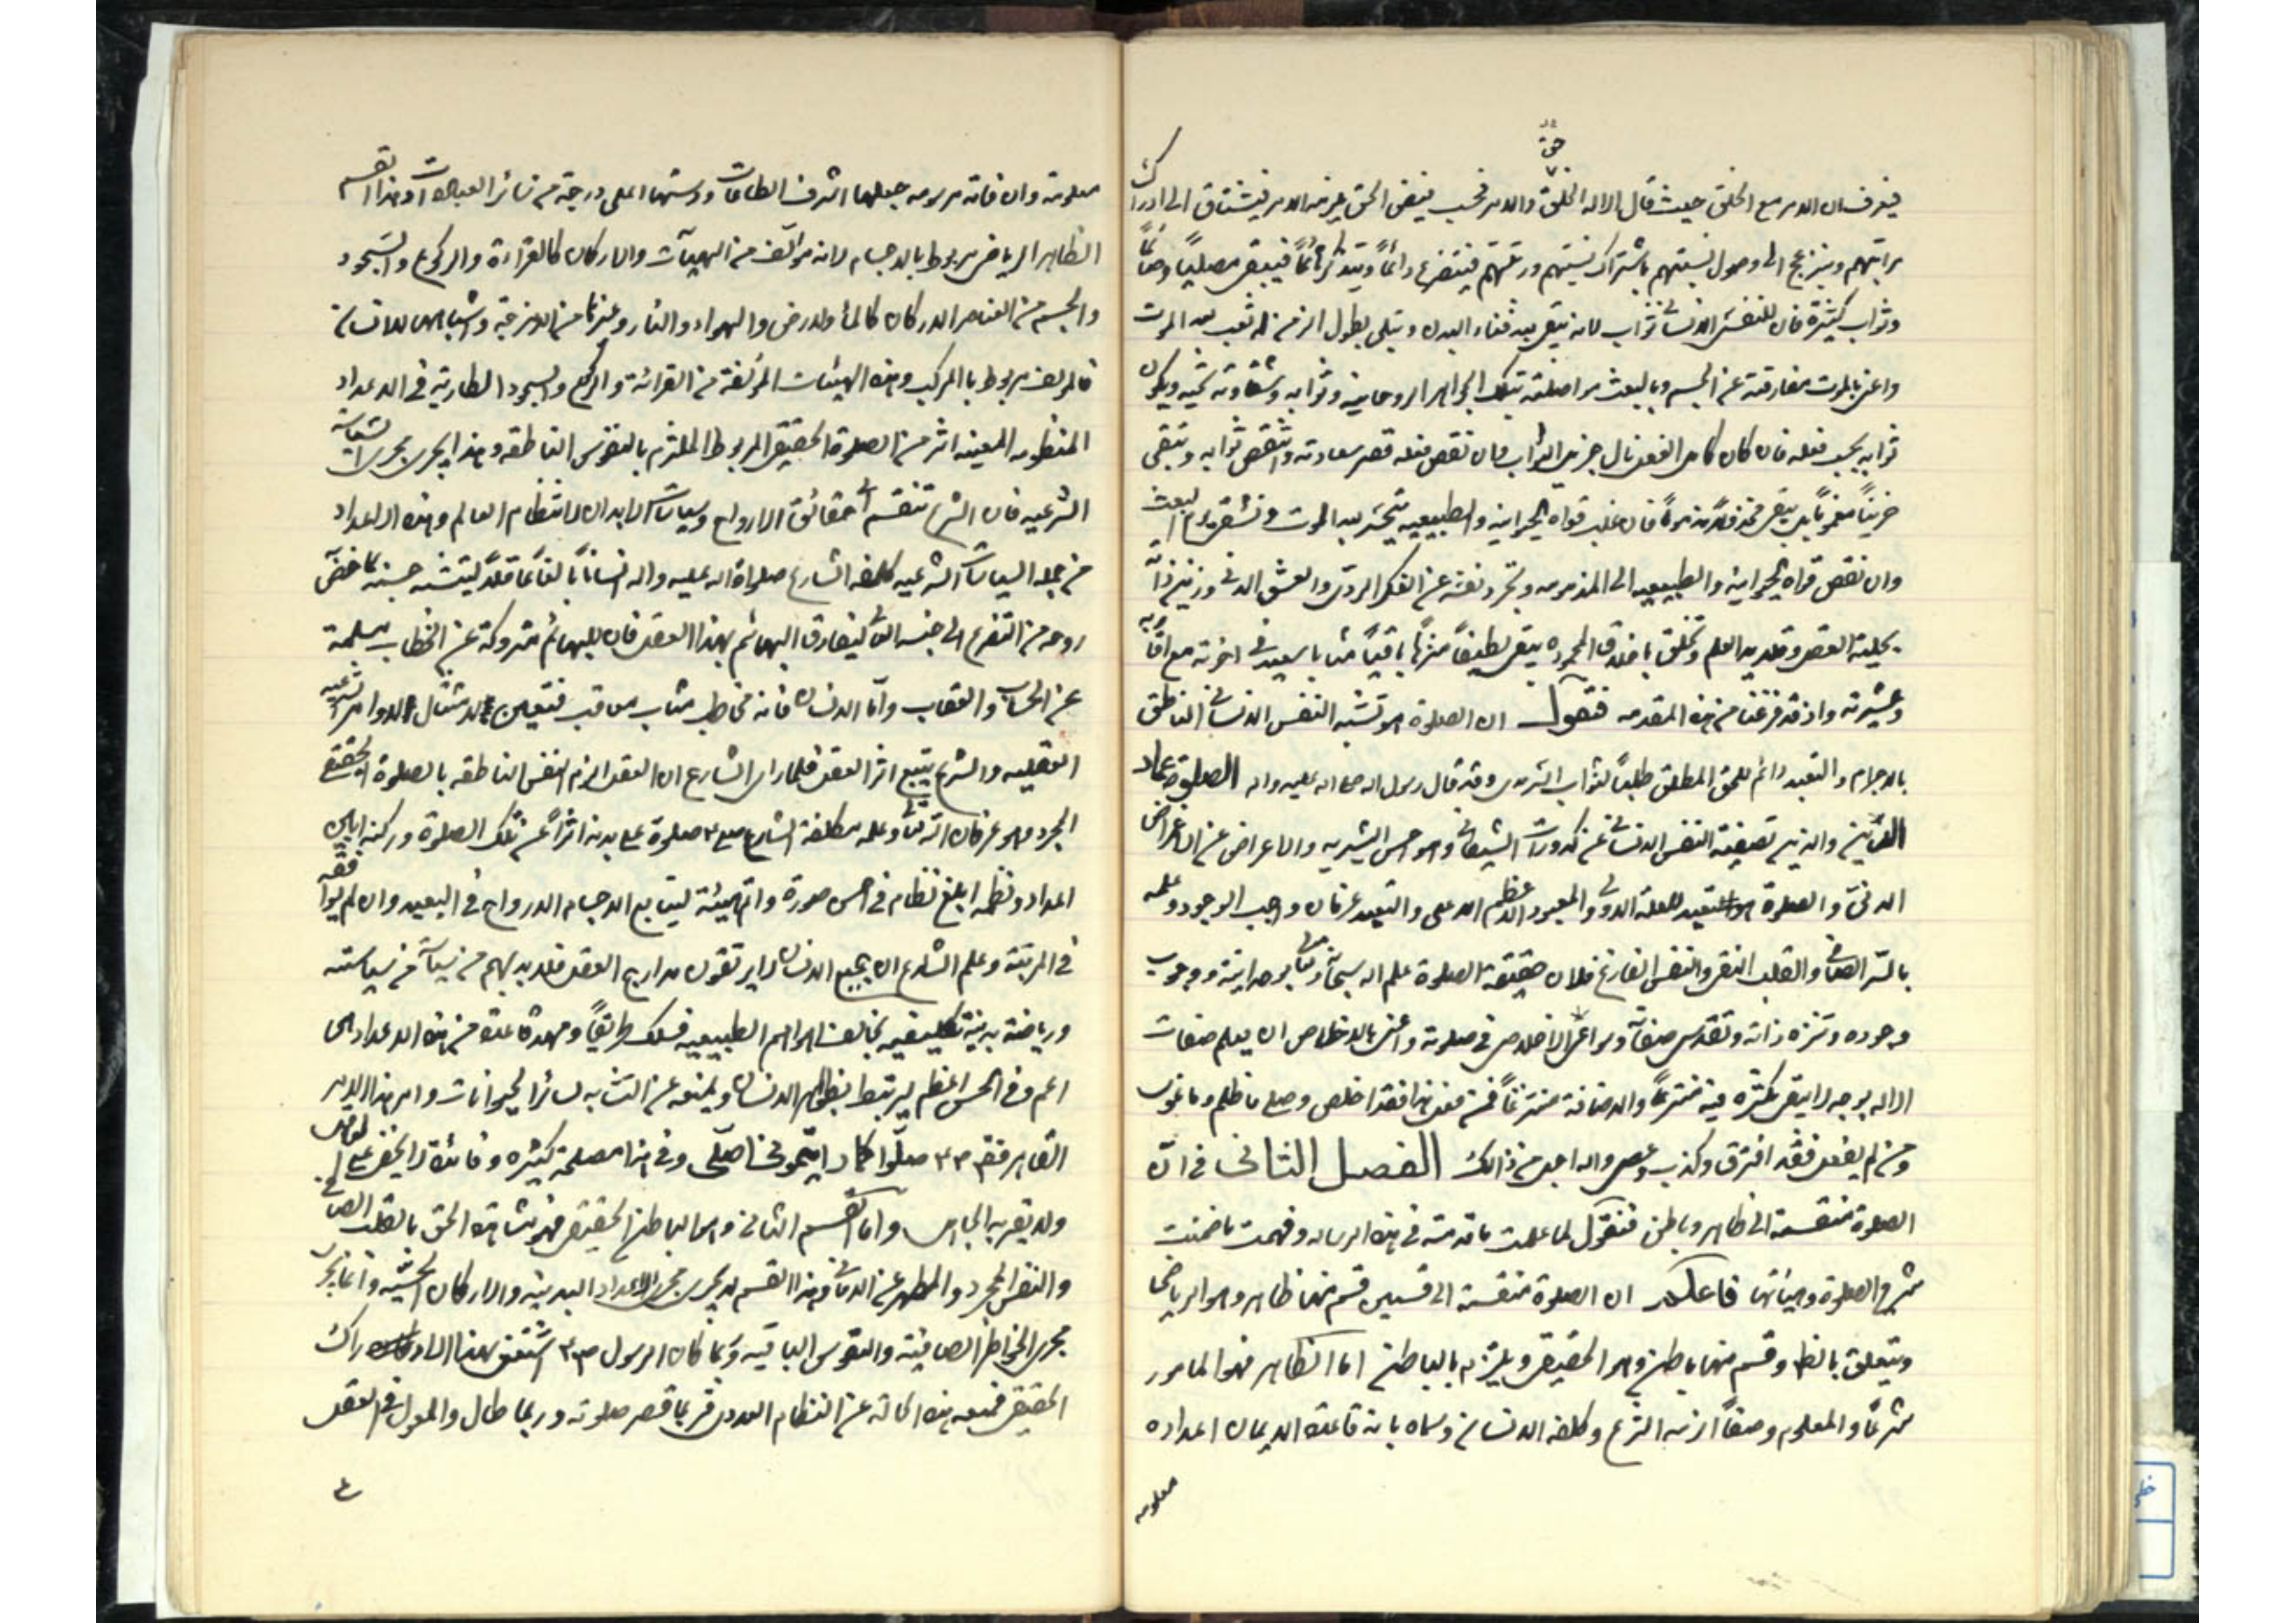 فيعرف ان الامر مع الخلق حيث قال الا له الخلق والامر فيحب فيض الحق يلزم الامر فيشتاق الى ادراك
مراتبهم وينزعج الى وصول نسبتهم باشتراك نسبتهم ورتبتهم فيتضرع دائماً ويتذكر دائماً فيبقى مصلياً وصائماً
وثواب كثيرة فان للنفس الانسانى ثواب لانه يبقى بعد فناء البدن ولا يبلى بطول الزمن له بعث بعد الموت
واعنى بالموت مفارقته عن الجسم وبالبعث مواصلته بتلك الجواهر الروحانية وثوابه وشقاوته ويكون
ثوابه بحسب فعله فان كان كامل الفعل نال جزيل الثواب وان نقص فعله قصر سعادته وانتقص ثوابه ويبقى
حزيناً مغموماً بل يبقى مخذولاً مذموماً فان غلب قواه الحيوانية والطبيعية يتحير بعد الموت ويشقى يوم البعث
وان نقص قواه الحيوانية والطبيعية المذمومه وتجرد نفسه عن الفكر الردى والعشق الدنى وزين ذاته
بحلية العقل وقلايد العلم وتخلق باخلاق المحموده يبقى لطيفاً منزهاً باقياً مثابا سعيدا فى اخرته مع اقاربه
وعشيرته واذ قد فرغنا من هذه المقدمه فنقول ان الصلوة هو تشبه النفس الانسانى الناطق
بالاجرام والتعبد دائم للحق المطلق طلباً لثواب السرمدى وقد قال رسول الله صلى الله عليه واله الصلوة عماد
الدين والدين تصفية النفس الانسانى عن كدورات الشيطانى وهواجس البشريه والاعراض عن الاعراض
الدنى والصلوة هو التعبد للعلة الاولى والمعبود الاعظم الاعلى والتعبد عرفان واجب الوجود وعلمه
بالسر الصافى والقلب النقى والنفس الفارغ فلان حقيقة الصلوة علم الله سبحانه وتعالى بوحدانيته ووجوب
وجوده وتنزه ذاته وتقدس صفاته وسوانح الاخلاص فى صلوته واعنى بالاخلاص ان يعلم صفات
الله بوجه لا يبقى للكثرة فيه مشرعاً والاضافة منتزعاً فمن فعل هذا فقد اخلص وصلى ما ظلم وما غوى
ومن لم يفعل فقد افترى وكذب وعصى والله اجل من ذالك الفصل الثانى فى ان
الصلوة منقسمة الى ظاهر وباطن فنقول لما علمت ما قدمته فى هذه الرساله وفهمت ما ضمنت
شرح الصلوة وهيئاتها فاعلم ان الصلوة منقسمة الى قسمين قسم منها ظاهر وهو الرياضى
ويتعلق بالظاهر وقسم منها باطن وهو الحقيقى ويلتزم بالباطن اما الظاهر فهو المامور
شرعاً والمعلوم وصفاً الزمه الشرع وكلفه الانسان وسماه بانه قاعدة الايمان اعداده
معلومه
معلومة واوقاته مرسومه جعلها اشرف الطاعات ورتبتها اعلى درجة من سائر العبادات وهذا القسم
الظاهر الرياضى مربوط بالاجسام لانه مؤلف من الهيآت والاركان كالقراءة والركوع والسجود
والجسم من العناصر والاركان كالماء والارض والهواء والنار وغيرها من الامزجة واشباهها للانسان
فالمؤلف مربوط بالمركب وهذه الهيئات المؤلفة من القرائة والركوع والسجود الطارية فى الاعداد
المنظومه المعينه اثر من الصلوة الحقيقى المربوط الملتزم بالنفوس الناطقه وهذا يجرى مجرى السياسة
الشرعيه فان الشرع تنقسم الى حقائق الارواح وسياسات الابدان لانتظام العالم وهذه الاعداد
من جمله السياسات الشرعيه كلفه الشارع صلواة الله عليه واله انساناً بالغاً عاقلاً ليتشبه جسمه بما خص
روحه من التضرع الى جنسه العالى ليفارق البهائم بهذا العقل فان البهائم متروكة عن الخطاب مسلمة
عن الحساب والعقاب واما الانسان فانه مخاطب مثاب معاقب فتعين لامتثال الاوامر الشرعيه
العقليه والشرع يتبع اثر العقل فلما راى الشارع ان العقل الزم النفس الناطقه بالصلوة الحقيقى
المجرد وهو عرفان الله تعالى وعلمه كلفه الشارع صلى صلوة على بدنه اثراً عن تلك الصلوة وركبه
اعداد ونظمه ابلغ نظام فى احسن صورة واتم هيئة ليتابع الاجسام الارواح فى التعبد وان لم يوافقه
فى المرتبة وعلم الشارع ان جميع الانسان لا يرتقون مدارج العقل فلا بد لهم من سياسة
ورياضة بدنية تكليفيه تخالف اهواءهم الطبيعيه فسلك طريقاً ومهد قاعدة من هذه الاعداد
اعم وفى الحس اعظم ليرتبط بظواهر الانسان ويمنعه عن التشابه لسائر الحيوانات وامر هذا الامر
القاهر فقال صلوا كما رايتمونى اصلى وفى هذا مصلحة كثيره وفائدة لا يخفى على العاقل
ولا يقر به الجاهل واما القسم الثانى وهو الباطن الحقيقى فهو مشاهدة الحق بالقلب الصافى
والنفس المجرد المطهر عن الامانى وهذا القسم لا يجرى مجرى الاعداد البدنية والاركان الحسية وانما يجرى
مجرى الخواطر الصافية والنفوس الباقيه وربما كان الرسول اشتغل بهذا الادراك
الحقيقى فمنعه هذه الحالة عن النظام العددى فربما قصر صلوته وربما طال والمعول فى العقل
٤